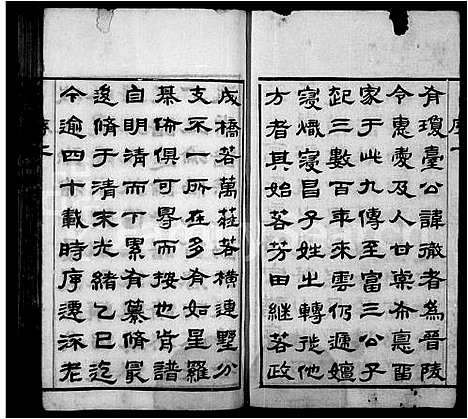 序一
有瓊臺公諱澂者為晉陵
令惠愛及人甘棠布蔭留
家于此九傳至富三公子
起三數百年來雲仍遞嬗
寖熾寖昌子姓之轉徙他
方者其始若芳田繼若政
成橋若萬莊若橫連墅分
支不一所在多有如星羅
棊佈俱可尋而按也肯譜
自明清而下累有纂脩最
後脩于清末光緒乙巳迄
今逾四十載時序遷流老
序二